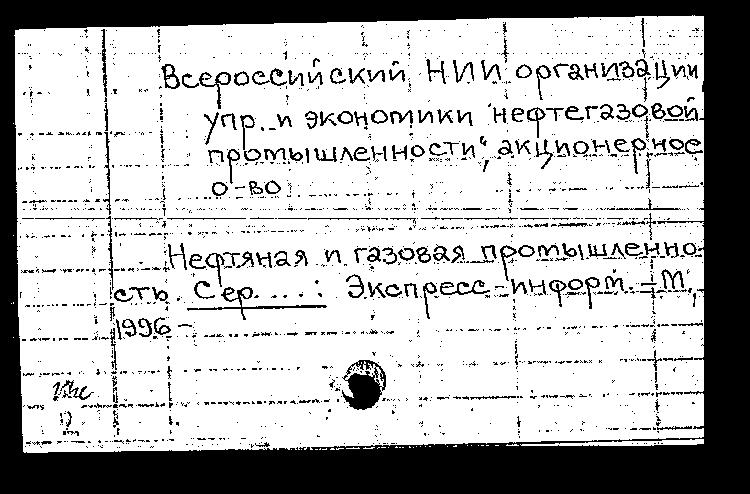 Всероссийский НИИ организации
упр. и экономики нефтегазовой
промышленности", акционерное
о-во
Нефтяная и газовая промышленно-
сть. Сер. ... : Экспресс-информ. - М.,
1996 -